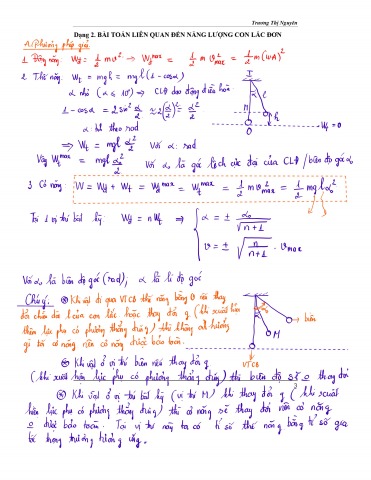 Trương Thị Nguyên
Dạng 2. BÀI TOÁN LIÊN QUAN ĐẾN NĂNG LƯỢNG CON LẮC ĐƠN
A. Phương pháp giải.
1. Động năng. Wđ = 1/2 mv² → Wđmax = 1/2 m v²max = 1/2 m(ωA)²
2. Thế năng. Wt = mgh = mgl(1 - cosα)
α nhỏ (α ≤ 10°) → CLĐ dao động điều hòa
1 - cosα = 2 sin² α/2 ≈ 2(α/2)² = α²/2
α: tính theo rad
⇒ Wt = mgl α²/2 Với α: rad
Vậy Wtmax = mgl α₀²/2 Với α₀ là góc lệch cực đại của CLĐ / biên độ góc α₀
3. Cơ năng: W = Wđ + Wt = Wđmax = Wtmax = 1/2 m v²max = 1/2 mgl α₀²
Tại 1 vị trí bất kỳ: Wđ = n Wt ⇒ { α = ± α₀/√(n+1)
v = ± √(n/(n+1)) . vmax
Với α₀ là biên độ góc (rad); α là li độ góc
I
α
l
M
h
O
Wt = 0
Chú ý. ⊛ Khi vật đi qua VTCB thế năng bằng 0 nên thay
đổi chiều dài l của con lắc hoặc thay đổi g (khi xuất hiện
thêm lực phụ có phương thẳng đứng) thì không ảnh hưởng
gì tới cơ năng nên cơ năng được bảo toàn.
biên
M
VTCB
⊛ Khi vật ở vị trí biên nếu thay đổi g
(khi xuất hiện lực phụ có phương thẳng đứng) thì biên độ sẽ o thay đổi
⊛ Khi vật ở vị trí bất kỳ (vị trí M) khi thay đổi g (khi xuất
hiện lực phụ có phương thẳng đứng) thì cơ năng sẽ thay đổi nên cơ năng
o được bảo toàn. Tại vị trí này ta có tỉ số thế năng bằng tỉ số gia
tốc trọng trường tương ứng.